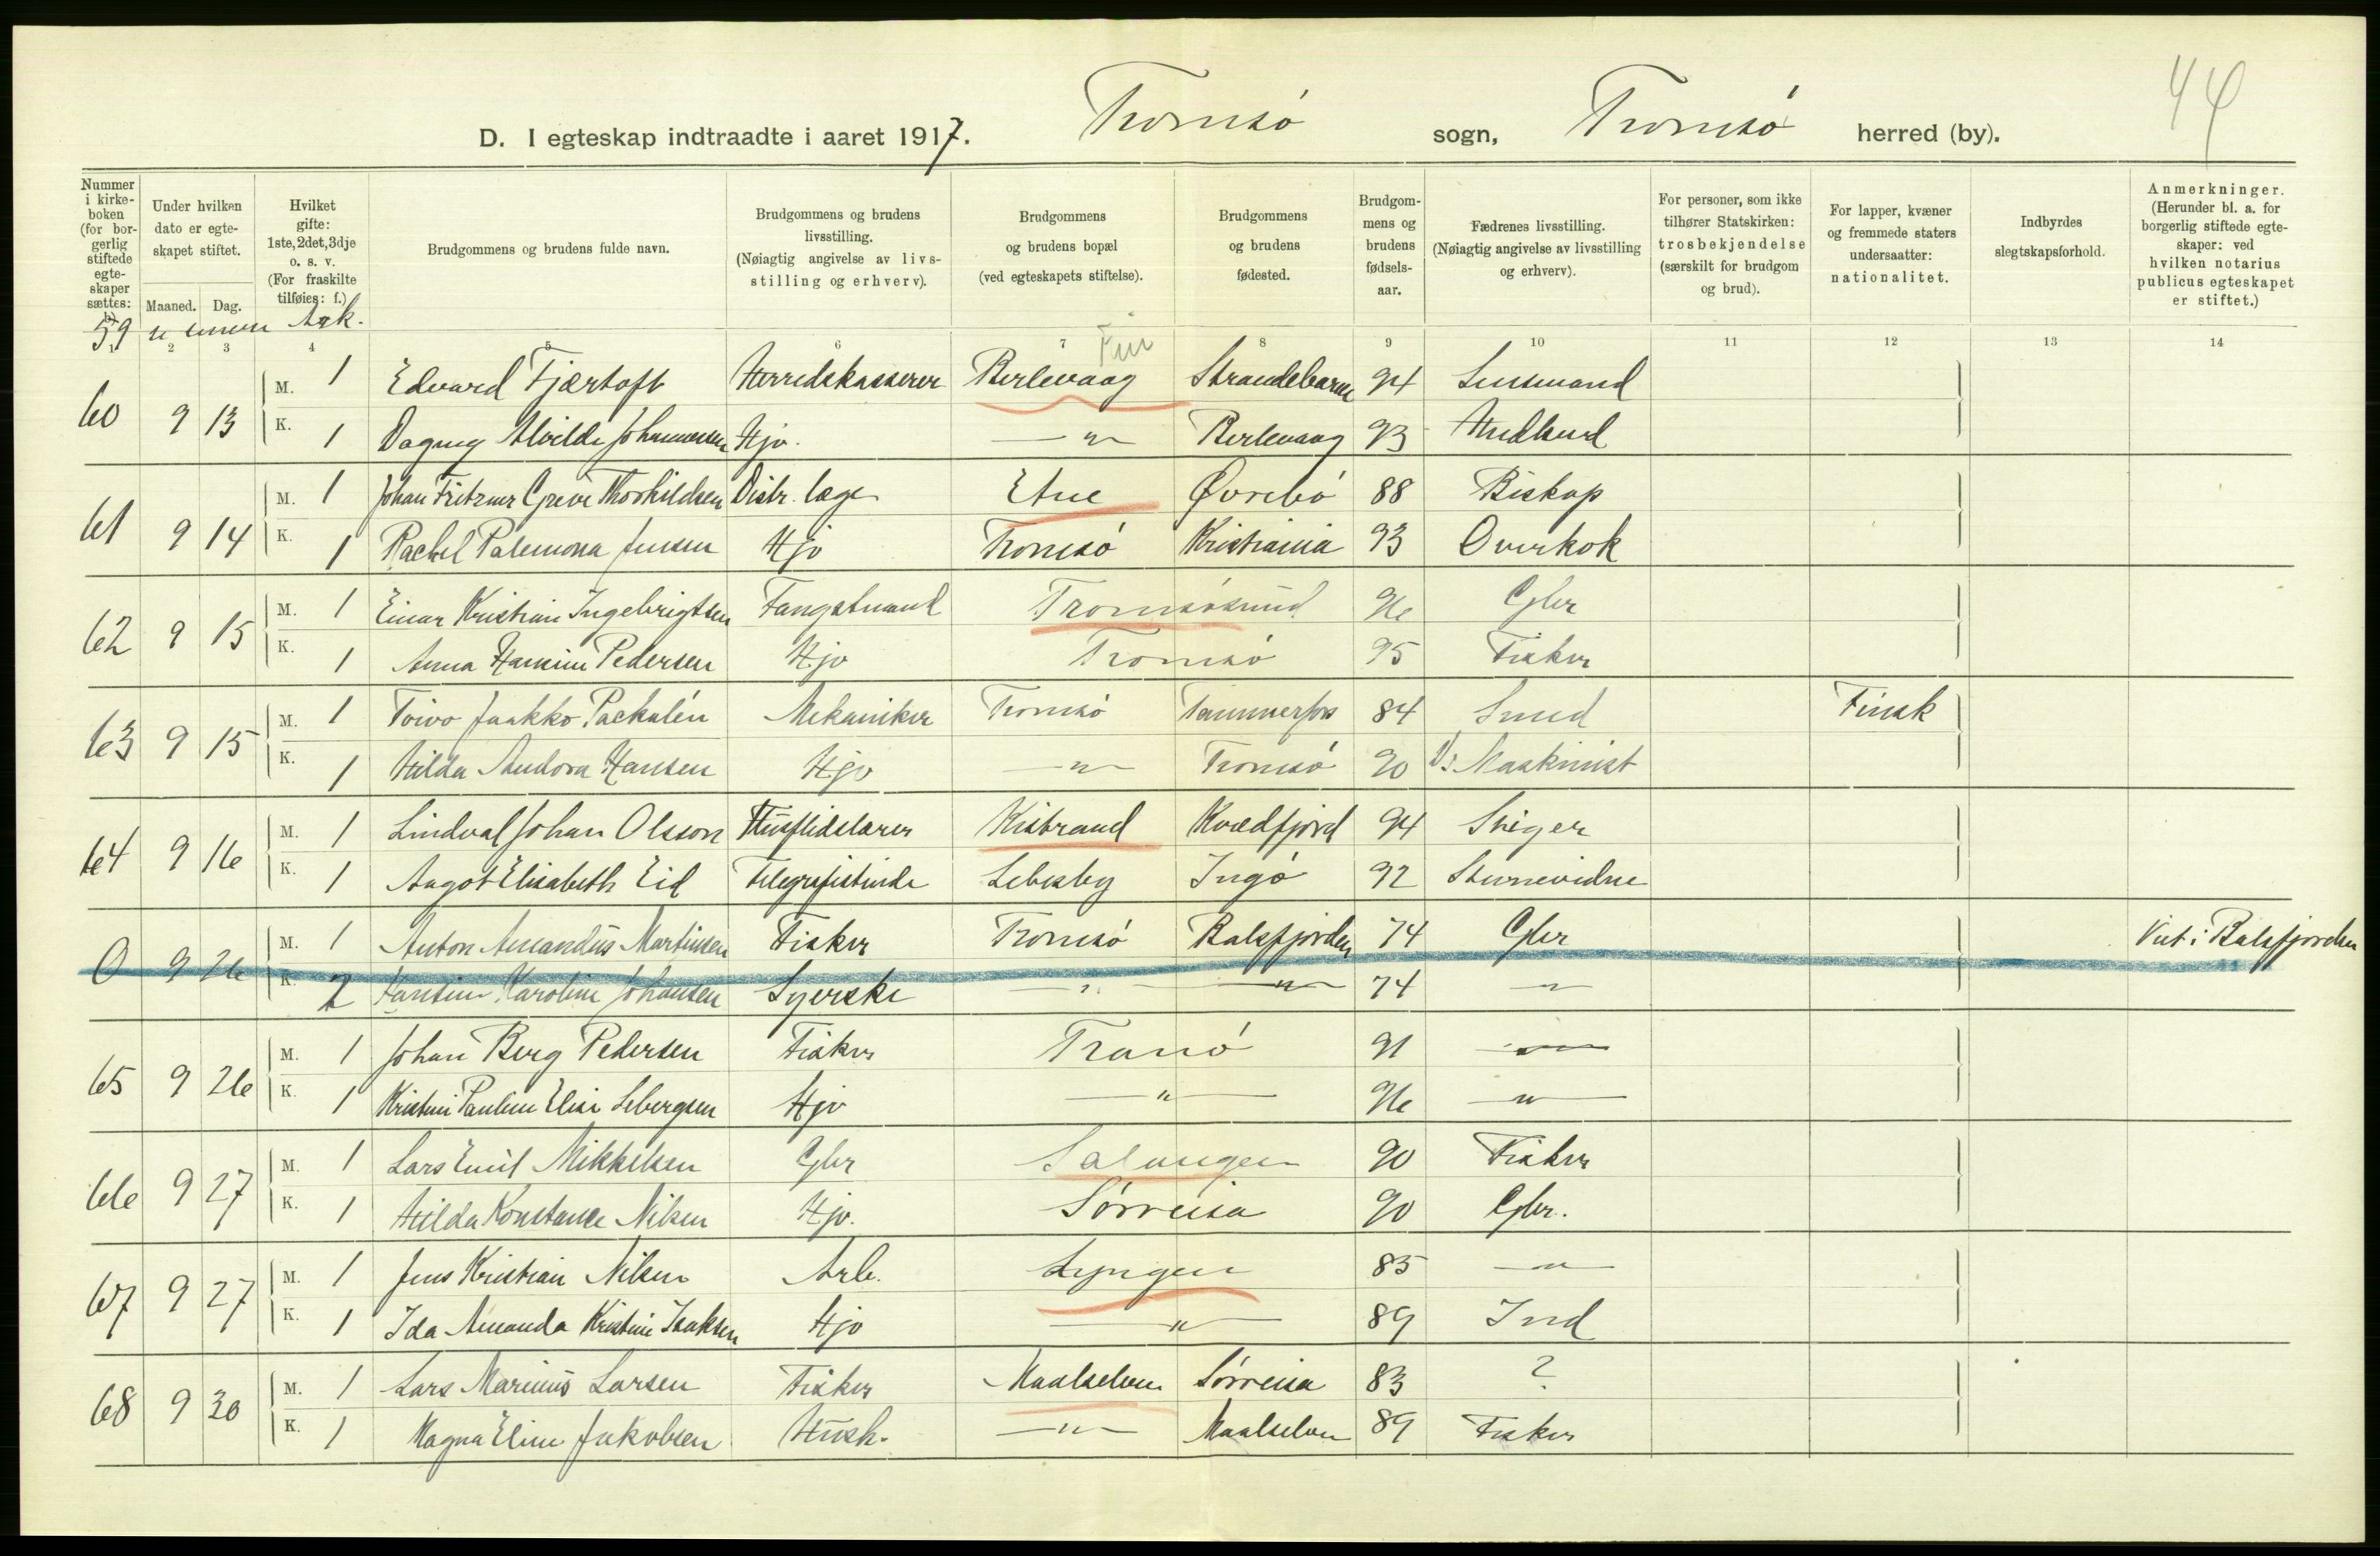 44
D. I egteskap indtraadte i aaret 1917. Tromsø sogn, Tromsø herred (by).
Nummer i kirke-boken (for bor-gerlig stiftede egte-skaper sættes: b)
Under hvilken dato er egte-skapet stiftet.
Maaned. Dag.
Hvilket gifte: 1ste, 2det, 3dje o. s. v. (For fraskilte tilføies: f.)
Brudgommens og brudens fulde navn.
Brudgommens og brudens livsstilling. (Nøiagtig angivelse av livs-stilling og erhverv).
Brudgommens og brudens bopæl (ved egteskapets stiftelse).
Brudgommens og brudens fødested.
Brudgom-mens og brudens fødsels-aar.
Fædrenes livsstilling. (Nøiagtig angivelse av livsstilling og erhverv).
For personer, som ikke tilhører Statskirken: trosbekjendelse (særskilt for brudgom og brud).
For lapper, kvæner og fremmede staters undersaatter: nationalitet.
Indbyrdes slegtskapsforhold.
Anmerkninger. (Herunder bl. a. for borgerlig stiftede egte-skaper: ved hvilken notarius publicus egteskapet er stiftet.)
59 Ark.
1 2 3 4 5 6 7 8 9 10 11 12 13 14
Fin
60 9 13 M. 1 Edvard Fjærtoft Herredskasserer Berlevaag Strandebarm 94 Lensmand
K. 1 Dagny Alvilde Johannesen Hjv. —"— Berlevaag 93 Andl
61 9 14 M. 1 Johan Fritzner Greve Thorkildsen Distr. læge Etne Øvrebø 88 Biskop
K. 1 Rachel Palemona Jensen Hjv Tromsø Kristiania 93 Overkok
62 9 15 M. 1 Einar Kristian Ingebrigtsen Fangstmand Tromsøsund 96 Gbr
K. 1 Anna Hansine Pedersen Hjv Tromsø 95 Fisker
63 9 15 M. 1 Toivo Jaakko Packalén Mekaniker Tromsø Tammerfors 84 Smed Finsk
K. 1 Hilda Andora Hansen Hjv —"— Tromsø 90 Maskinist
64 9 16 M. 1 Lindval Johan Olsson Husflidslærer Kistrand Kvædfjord 94 Stiger
K. 1 Aagot Elisabeth Eid Telegrafistinde Lebesby Ingø 92
0 9 26 M. 1 Anton Amandus Martinsen Fisker Tromsø Balsfjorden 74 Gbr Viet i Balsfjorden
K. 2 Hansine Karoline Johansen Syerske —"— —"— 74 —"—
65 9 26 M. 1 Johan Berg Pedersen Fisker Tranø 91 —"—
K. 1 Kristine Pauline Elise Lebergsen Hjv —"— 96 —"—
66 9 27 M. 1 Lars Emil Mikkelsen Gbr Salangen 90 Fisker
K. 1 Hilda Konstance Nilsen Hjv. Sørreisa 90 Gbr.
67 9 27 M. 1 Jens Kristian Nilsen Arb. Lyngen 85 —"—
K. 1 Ida Amanda Kristine Isaksen Hjv —"— 89 Ind
68 9 30 M. 1 Lars Marinus Larsen Fisker Maalselven Sørreisa 83 ?
K. 1 Magna Eline Jakobsen Hush. —"— Maalselven 89 Fisker